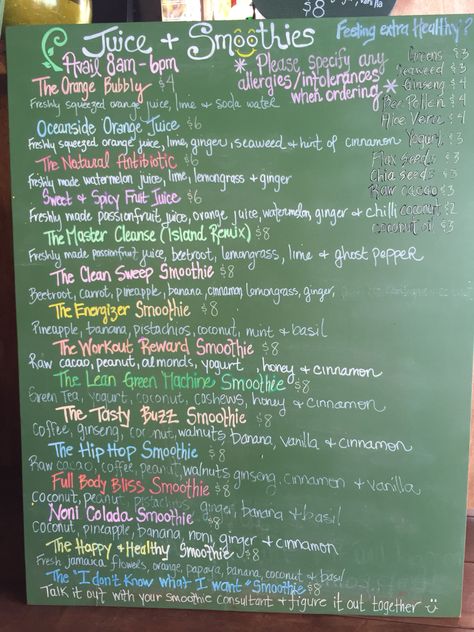 $8
Juice + Smoothies
Avail 8am-6pm
* Please specify any
allergies/intolerances
when ordering *
Feeling extra Healthy?
Greens $3
Seaweed $3
Ginseng $4
Bee Pollen $4
Aloe Vera $4
Yogurt $3
Flax seeds $3
Chia seeds $3
Raw cacao $3
coconut $2
coconut oil $3
The Orange Bubbly $4
Freshly squeezed orange juice, lime & soda water
Oceanside Orange Juice $6
Freshly squeezed orange juice, lime, ginger, seaweed & hint of cinnamon
The Natural Antibiotic $6
freshly made watermelon juice, lime, lemongrass & ginger
Sweet & Spicy Fruit Juice $6
Freshly made passionfruit juice, orange juice, watermelon, ginger & chilli
The Master Cleanse (Island Remix) $8
Freshly made passionfruit juice, beetroot, lemongrass, lime & ghost pepper
The Clean Sweep Smoothie $8
Beetroot, carrot, pineapple, banana, cinnamon, lemongrass, ginger,
The Energizer Smoothie $8
Pineapple, banana, pistachios, coconut, mint & basil
The Workout Reward Smoothie $8
Raw cacao, peanut, almonds, yogurt, honey & cinnamon
The Lean Green Machine Smoothie $8
Green Tea, yogurt, coconut, cashews, honey & cinnamon
The Tasty Buzz Smoothie $8
Coffee, ginseng, coconut, walnuts, banana, vanilla & cinnamon
The Hip Hop Smoothie $8
Raw cacao, coffee, peanut, walnuts ginseng, cinnamon & vanilla
Full Body Bliss Smoothie $8
Coconut, peanut, pistachios, ginger, banana & basil
Noni Colada Smoothie $8
Coconut, pineapple, banana, noni, ginger & cinnamon
The Happy & Healthy Smoothie $8
Fresh jamaica flowers, orange, papaya, banana, coconut & basil
The "I don't know what I want" Smoothie $8
Talk it out with your smoothie consultant & figure it out together